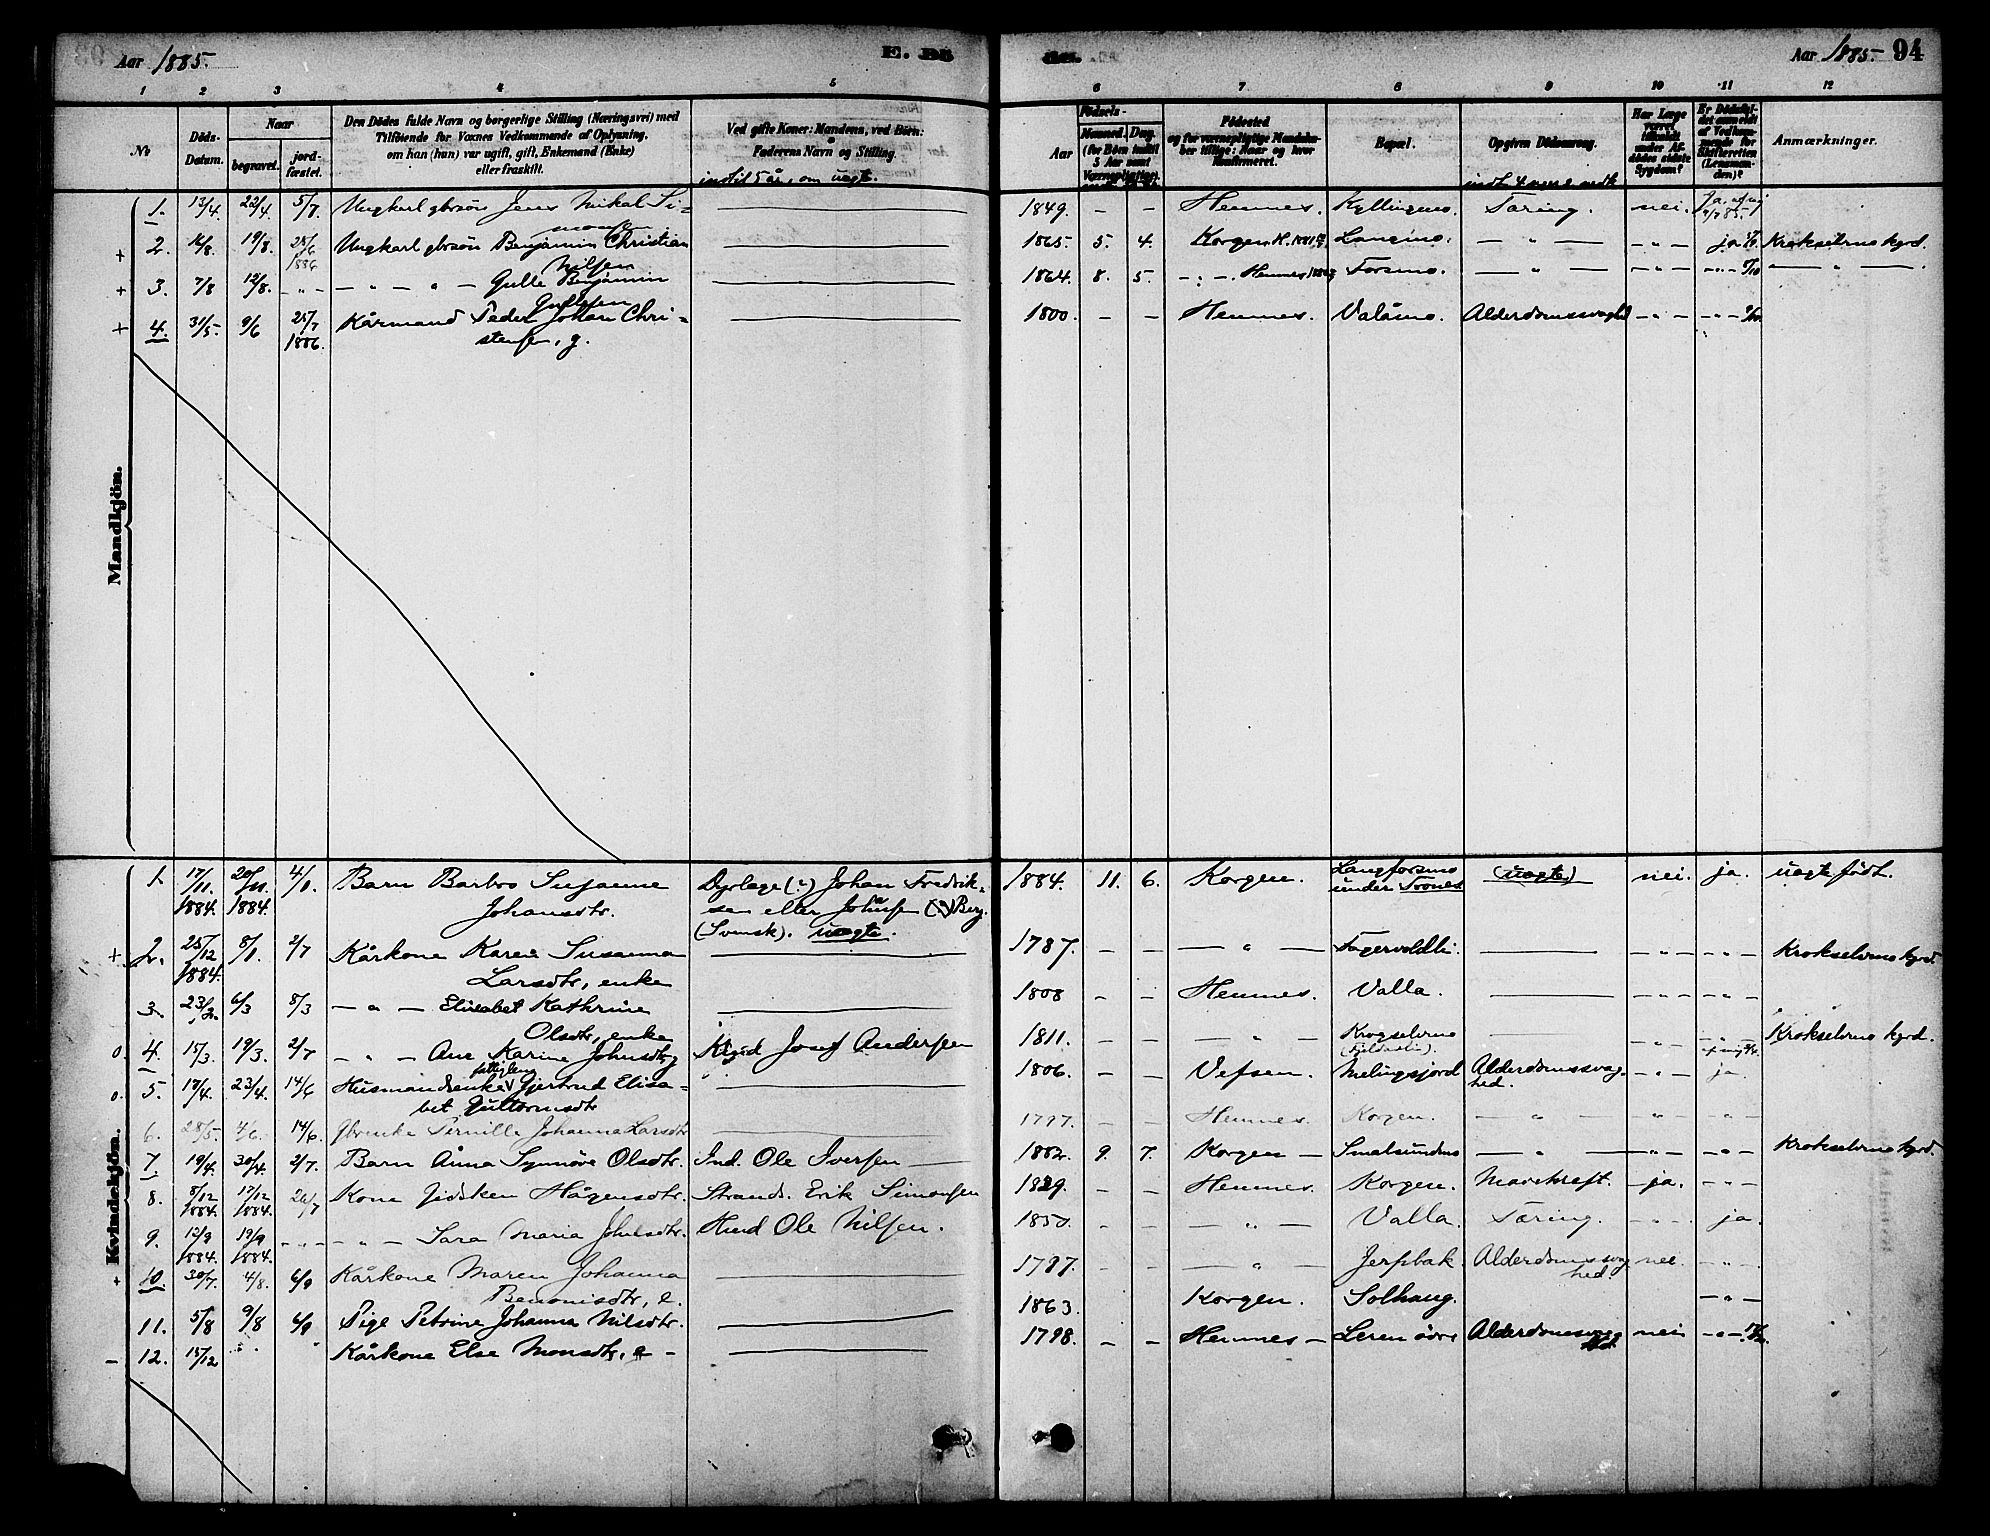 Aar 1885.
E. Dö
de.
Aar 1885. 94
1 2 3 4 5 6 7 8 9 10 11 12
No
Døds-Datum.
Naar
begravet.
jord-fæstet.
Den Dødes fulde Navn og borgerlige Stilling (Næringsvei) med
Tilføiende for Voxnes Vedkommende af Oplysning,
om han (hun) var ugift, gift, Enkemand (Enke)
eller fraskilt.
Ved gifte Koner: Mandens, ved Børn:
Faderens Navn og Stilling.
indtil 5 år, om uegte.
Fødsels-
Aar
Maaned. Dag.
(for Børn indtil
5 Aar samt
Værnepligtige)
Fødested
og for værnepligtige Mandskaber tillige: Naar og hvor
Konfirmeret.
Bopæl.
Opgiven Dødsaarsag.
Har Læge
været
tilkaldt
under Afdødes sidste
Sygdom?
Er Dødsfaldet anmeldt
af Vedkommende for
Skifteretten
(Lensmanden)?
Anmærkninger.
Mandkjön.
1. 13/4. 22/4. 5/7. Ungkarl gbrsøn Jens Mikal Simonsen 1849. - - Hemnes. Kyllingmo. Tæring. nei. Ja,
+ 2. 14/8. 19/8. 25/6 1886 Ungkarl gbrsøn Benjamin Christian Nilsen 1865. 5. 4. Korgen. Lancimo. - " - - " - ja Krokselvmo kgrd.
+ 3. 7/8 12/8. - " - - " - " - Gulle Benjamin Gullesen 1864. 8. 5. Hemnes Forsmo. - " - - " -
+ 4. 31/5. 9/6 25/7 1886. Kårmand Peder Johan Christensen, g. 1800. - - Hemnes. Valåmo. Alderdomssvaghed - " -
Kvindekjön.
1. 17/11. 1884. 20/11. 1884. 4/1. Barn Barbro Susanne Johansdtr. Dyrlæge (?) Johan Fredriksen eller Johnsen (?) Berg. (Svensk). uegte. 1884. 11. 6. Korgen. Langforsmo under Tvones (uegte) nei. ja. uegte født.
+ 2. 25/12 1884. 8/1. 2/7 Kårkone Karen Susanna Larsdtr, enke 1787. - - - " - Fagervoldli. - " - - " - Krokselvmo kgrd.
3. 23/2. 6/3 8/3 - " - Elisabet Kathrine Olsdtr, enke 1808 - - Hemnes. Valla. - " - - " -
0. 4. 15/3. 19/3. 2/7 - " - Ane Karine Johnsdtr, g Josef Andersen 1811. - - - " - Krogselvmo - " - Krokselvmo kgrd.
0. 5. 17/4. 23/4. 14/6 Husmandsenke Gjertrud Elisabet Guttormsdtr 1806. - - Vefsen. Melingsjord Alderdomssvaghed. - " - ja.
6. 28/5. 4/6. 14/6. Gbrenke Pernille Johanna Larsdtr 1797. - - Hemnes. Korgen. - " - - " - - " -
7. 19/4. 30/4. 2/7. Barn Anna Synnöve Olsdtr. Ind. Ole Iversen 1882. 9. 7. Korgen - Smalsundmo - " - - " - - " - Krokselvmo kgrd.
8. 8/12 1884. 17/12 1884. Kone Jidsken Hågensdtr. Strands. Erik Simonsen 1829. - - Hemnes. Korgen. Mavekræft. - ja. - " -
9. 12/9 1884. 19/9 1884. - " - - " - Sara Maria Johnsdtr. Hmd Ole Nilsen. 1850. - - - " - Valla. Tæring. - " - ja.
+ 10. 30/7. 4/8. 6/9 Kårkone Maren Johanna Benonisdtr, e. 1787. - - - " - Jerpbak. Alderdomssvaghed. nei. - " -
11. 5/8 9/8 6/9 Pige Petrine Johanna Nilsdtr. 1863. Korgen. Solhaug. - " -
- 12. 15/12 Kårkone Else Monsdtr, e - 1798. - - Hemnes - Leren övre Alderdomssvaghed. nei - " -